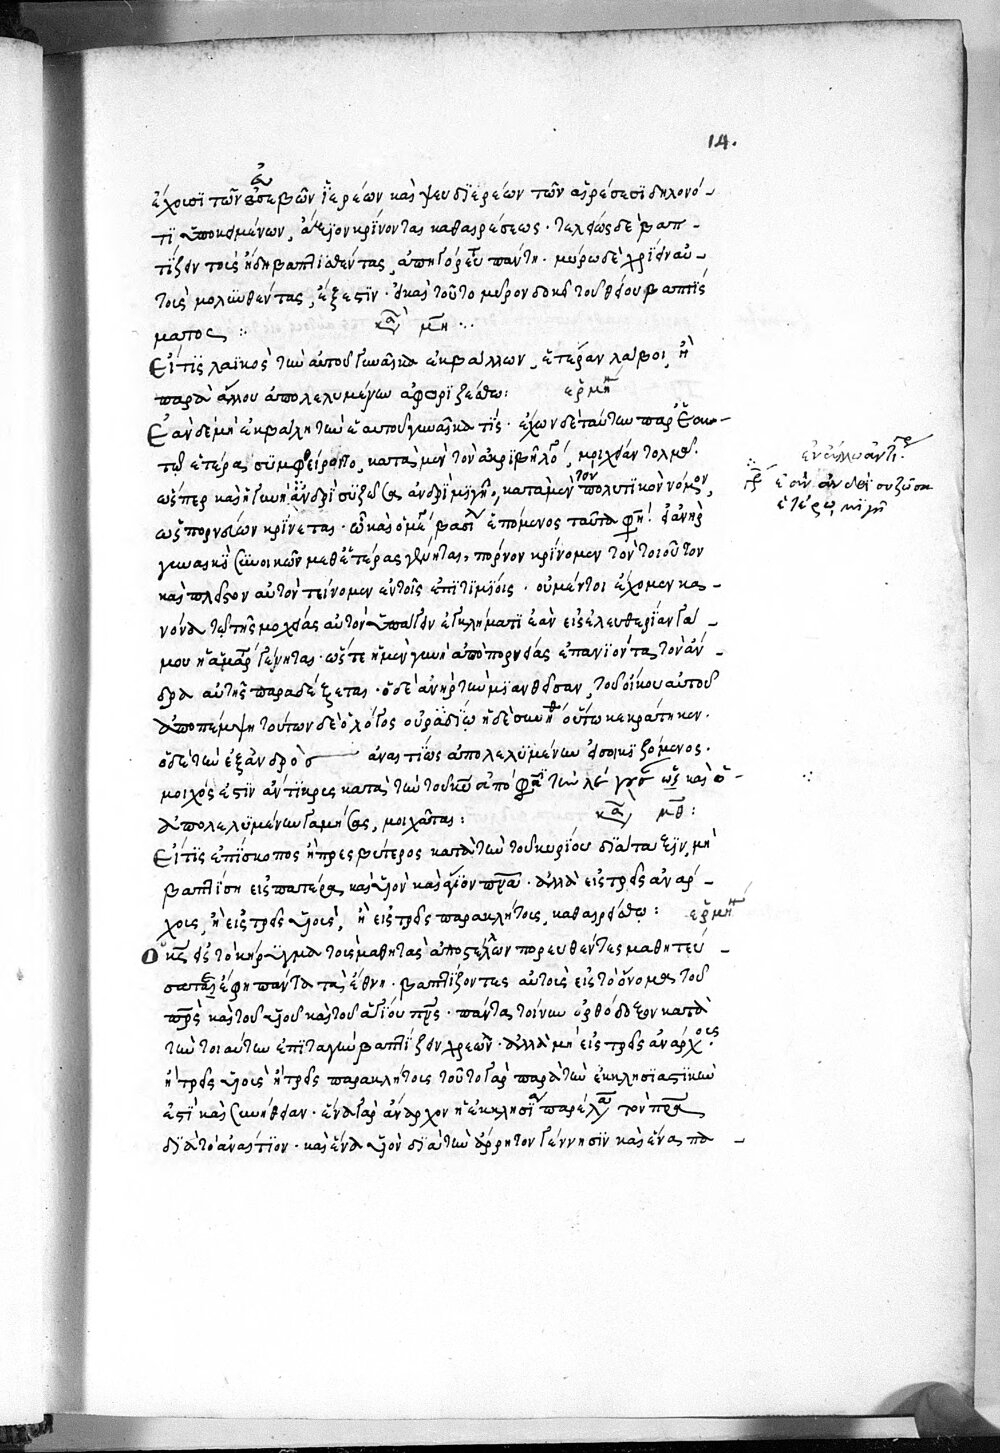 14.
ἔχουσι τῶν εὐσεβῶν ἱερέων καὶ ψευδϊερέων τῶν αἱρέσεσι δηλονό-
τι ὑποκειμένων, ἄξιον κρίνονται καθαιρέσεως. τελείως δὲ βαπ-
τίζειν τοὺς ἤδη βαπτισθέντας, ἀπηγόρευται πάντῃ. μύρω δὲ χρίειν αὐ-
τοὺς μολυνθέντας, ἔξεστιν. καὶ τοῦτο μέρον τοῦ θείου βαπτίσ
ματος :
κα μη..
Εἴ τις λαϊκὸς τὴν αὐτοῦ γυναῖκα ἐκβάλλων, ἑτέραν λάβοι, ἢ
παρὰ ἄλλου ἀπολελυμένην ἀφοριζέσθω: ἑρμη
Ἐὰν δὲ μὴ ἐκβάλῃ τὴν ἑαυτοῦ γυναῖκα τίς. ἔχων δὲ ταύτην παρ' ἑαυ-
τῷ ἑτέρα συμφθείροιτο, κατὰ μὲν τὸν ἀκριβῆ λό, μοιχείαν τολμᾷ.
ὥσπερ καὶ ἡ γυνὴ ἀνδρὶ συζῶσα ἀνδρὶ μιγῆ, κατὰ μὲν τὸν πολιτικὸν νόμον,
ὡς πορνεύων κρίνεται. ὧ καὶ ὁ μέ βασί ἑπόμενος ταῦτα φη! ἐὰν ἀνὴρ
γυναικὶ συνοικῶν μεθ' ἑτέρας γένηται, πόρνον κρίνομεν τὸν τοιοῦτον
καὶ πλεῖον αὐτὸν τείνομεν ἐν τοῖς ἐπιτιμίοις. οὐ μέντοι ἔχομεν κα-
νόνα τῷ τῆς μοιχείας αὐτὸν ὑπαγειν ἐγκλήματι ἐὰν εἰς ἐλευθερίαν γά-
μου ἡ ἁμαρ γένηται. ὥστε ἡ μὲν γυνὴ ἀπὸ πορνείας ἐπανιόντα τὸν ἄν-
δρα αὐτῆς παραδέξεται. ὁ δὲ ἀνὴρ τὴν μιανθεῖσαν, τοῦ οἴκου αὐτοῦ
ἀποπέμψη τούτων δὲ ὁ λόγος οὐ ράδιω ἡ δὲ συνη οὕτω κεκράτηκεν.
ὁ δὲ τὴν ἐξ ἀνδρὸς ἀναιτίως ἀπολελυμένην εἰσοικιζόμενος.
μοιχός ἐστιν ἄντικρυς κατὰ τὴν τοῦ κυ ἀπόφα τὴν λέγουσ ὡς καὶ ὁ-
ἀπολελυμένην γαμήσας, μοιχᾶται: κα μθ:
Εἴ τις ἐπίσκοπος ἢ πρεσβύτερος κατὰ τὴν τοῦ κυρίου διάταξιν, μὴ
βαπτίση εἰς πατέρα καὶ υἱὸν καὶ ἅγιον πνα. ἀλλὰ εἰς τρεῖς ἀνάρ-
χους, ἢ εἰς τρεῖς υἱοὺς, ἢ εἰς τρεῖς παρακλήτους, καθαιρείσθω: ἑρμη
Ὁ κς εἰς τὸ κήρυγμα τοὺς μαθητὰς ἀποστέλλων πορευθέντες μαθητεύ-
σατε ἔφη πάντα τὰ ἔθνη. βαπτίζοντες αὐτοὺς εἰς τὸ ὄνομα τοῦ
πρς καὶ τοῦ υἱοῦ καὶ τοῦ ἁγίου πνς. πάντας τοίνυν ὀρθόδοξον κατὰ
τὴν τοιαύτην ἐπιταγὴν βαπτίζειν χρεών. ἀλλὰ μὴ εἰς τρεῖς ἀνάρχους
ἢ τρεῖς υἱοὺς ἢ τρεῖς παρακλήτους τοῦτο γὰρ παρὰ τὴν ἐκκλησιαστικὴν
ἐστι καὶ συνήθειαν. ἕνα γὰρ ἄναρχον ἡ ἐκκλησία παρέλα τὸν πρα
διὰ τὸ ἀναίτιον. καὶ ἕνα υἱὸν διὰ τὴν ἄρρητον γέννησιν καὶ ἕνα πα-
ἐν ἄλλω ἀντιγρ.
ἐὰν ἀνδρὶ συζῶσα
ἑτέρῳ μιγῆ